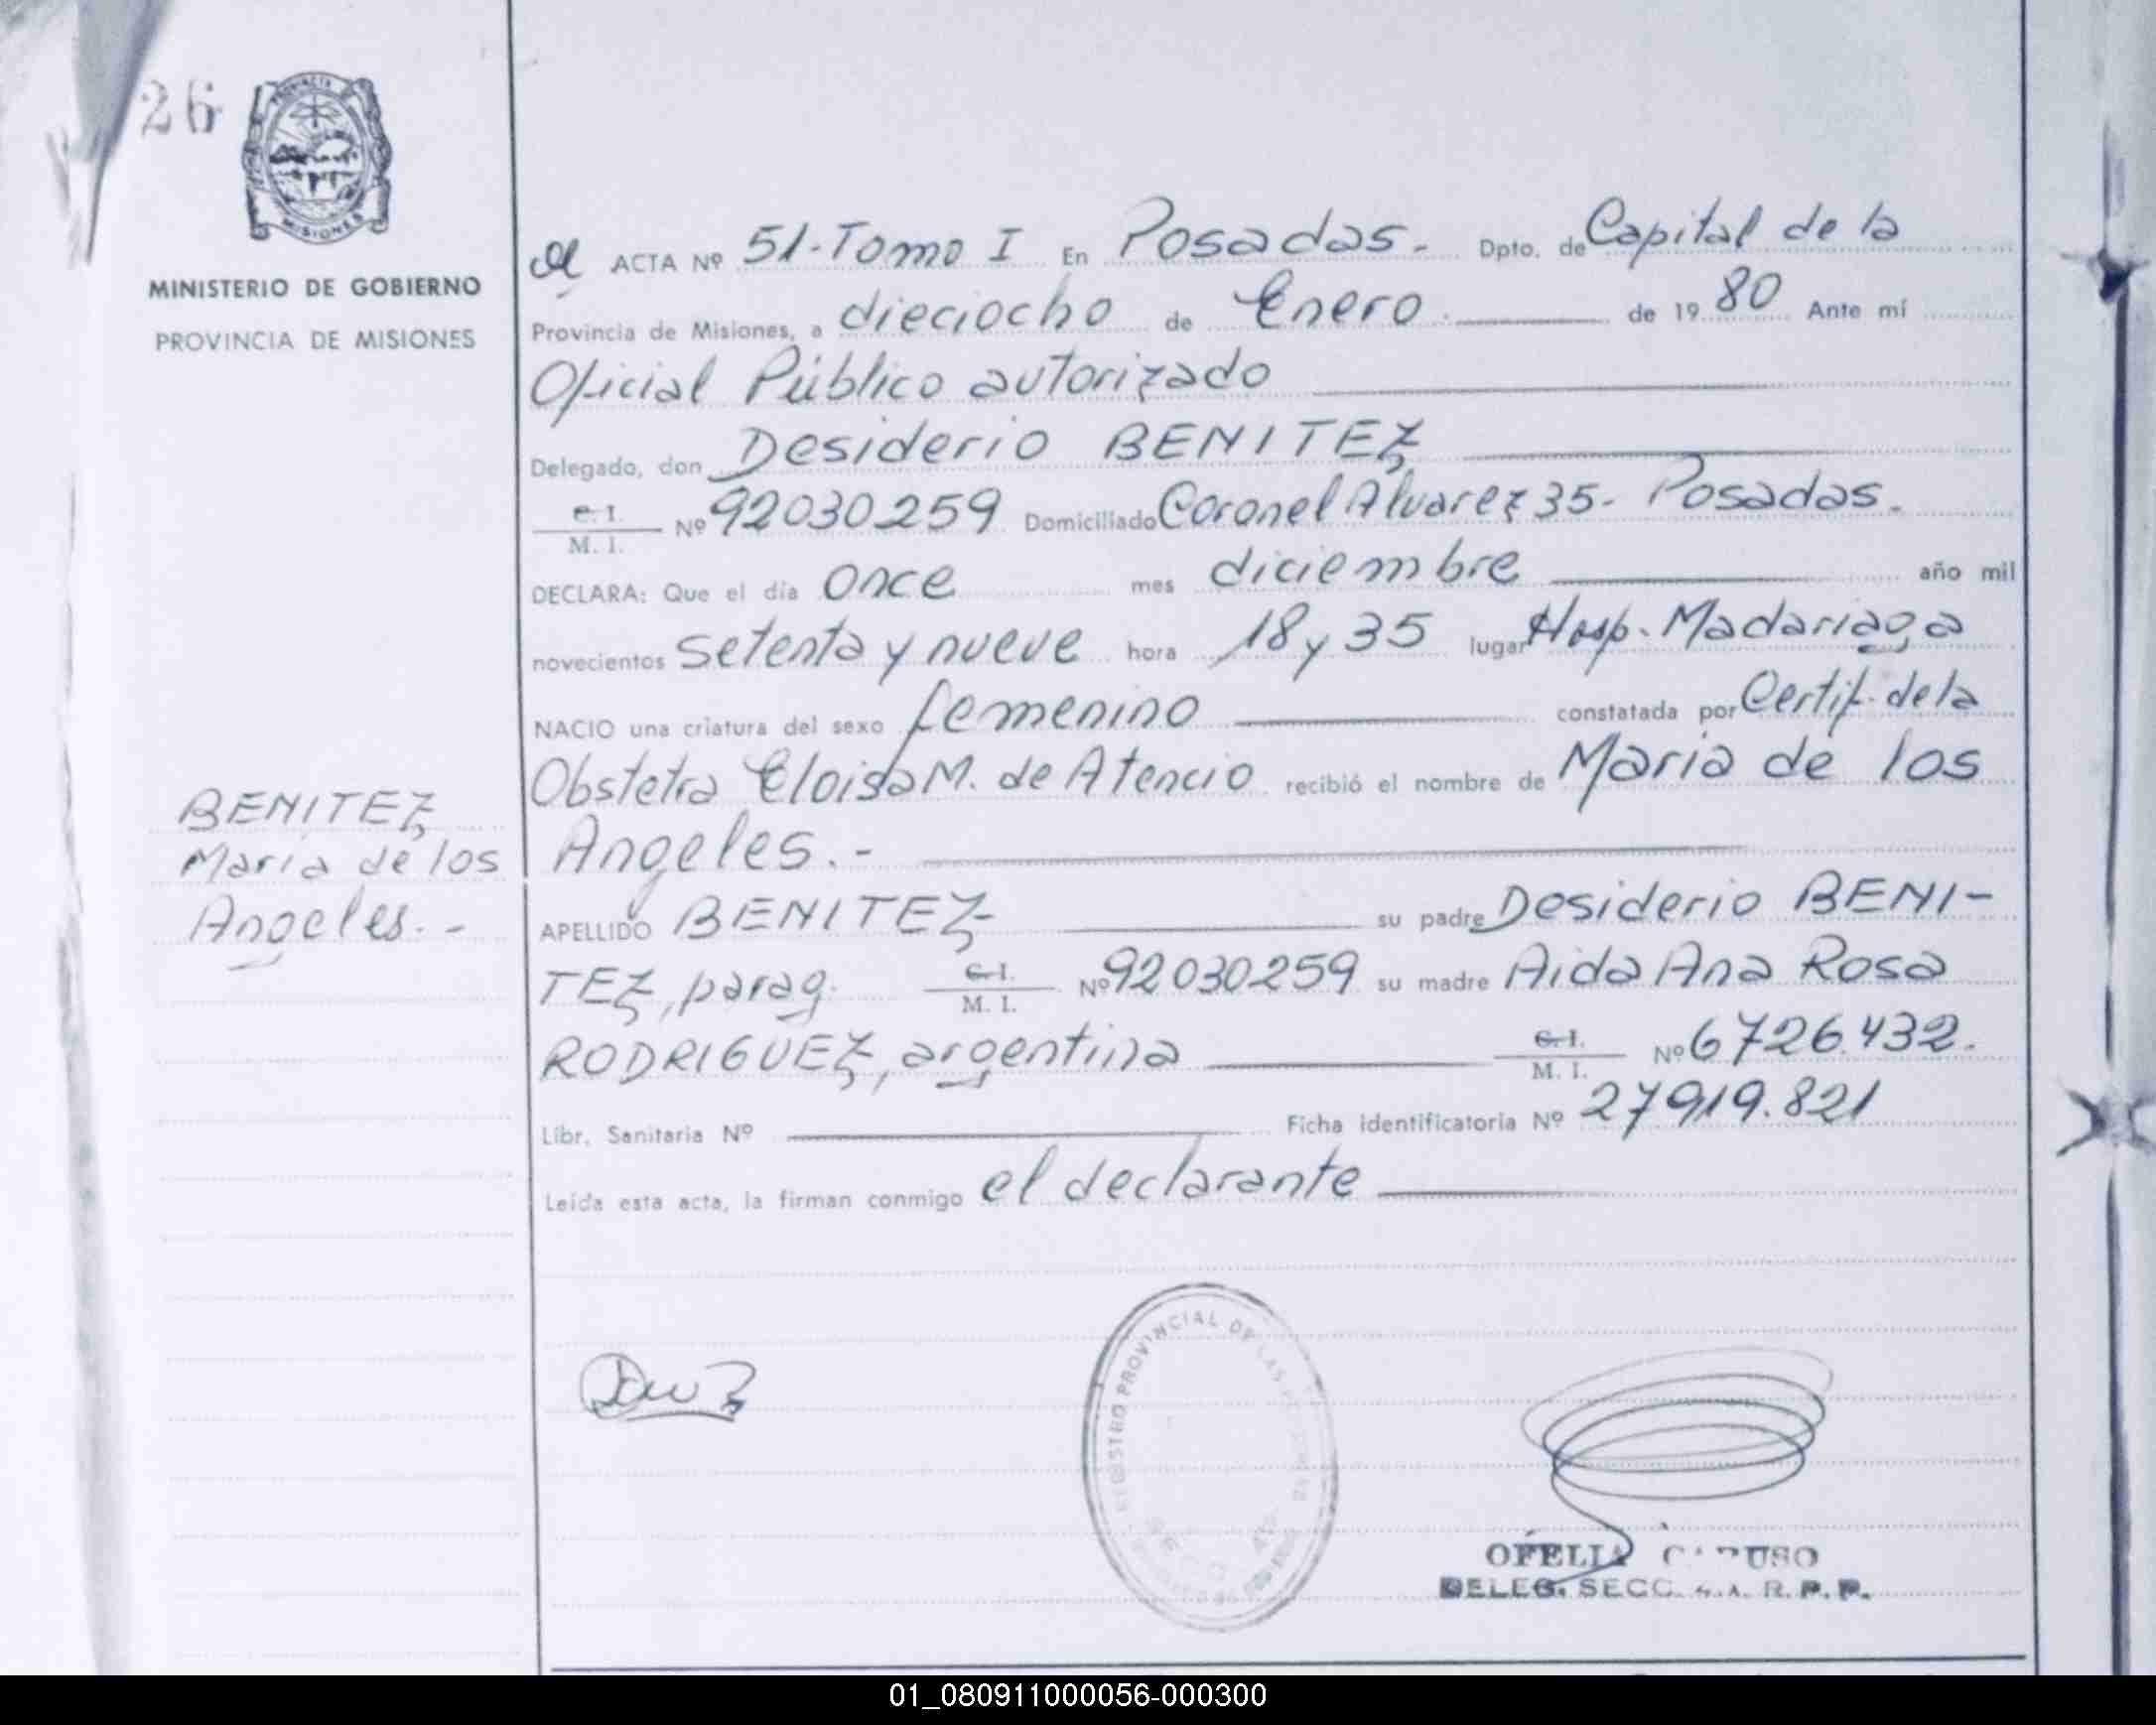 26
PROVINCIA
MISIONES
MINISTERIO DE GOBIERNO
PROVINCIA DE MISIONES
ACTA Nº 51-Tomo I En Posadas.- Dpto. de Capital de la
Provincia de Misiones, a dieciocho de Enero. de 1980 Ante mí
Oficial Público autorizado
Delegado, don Desiderio BENITEZ
C. I.
M. I. Nº 92030259 Domiciliado Coronel Alvarez 35.- Posadas.
DECLARA: Que el día once mes diciembre año mil
novecientos setenta y nueve hora 18 y 35 lugar Hosp. Madariaga
NACIO una criatura del sexo femenino constatada por Certif. de la
Obstetra Eloisa M. de Atencio recibió el nombre de Maria de los
Angeles.-
BENITEZ
Maria de los
Angeles.-
APELLIDO BENITEZ su padre Desiderio BENI-
TEZ, parag. C. I.
M. I. Nº 92030259 su madre Aida Ana Rosa
RODRIGUEZ, argentina C. I.
M. I. Nº 6726.432.
Libr. Sanitaria Nº Ficha identificatoria Nº 27919.821
Leída esta acta, la firman conmigo el declarante
REGISTRO PROVINCIAL DE LAS
OFELIA
DELEG. SECC. 4.A. R. P. P.
01_080911000056-000300